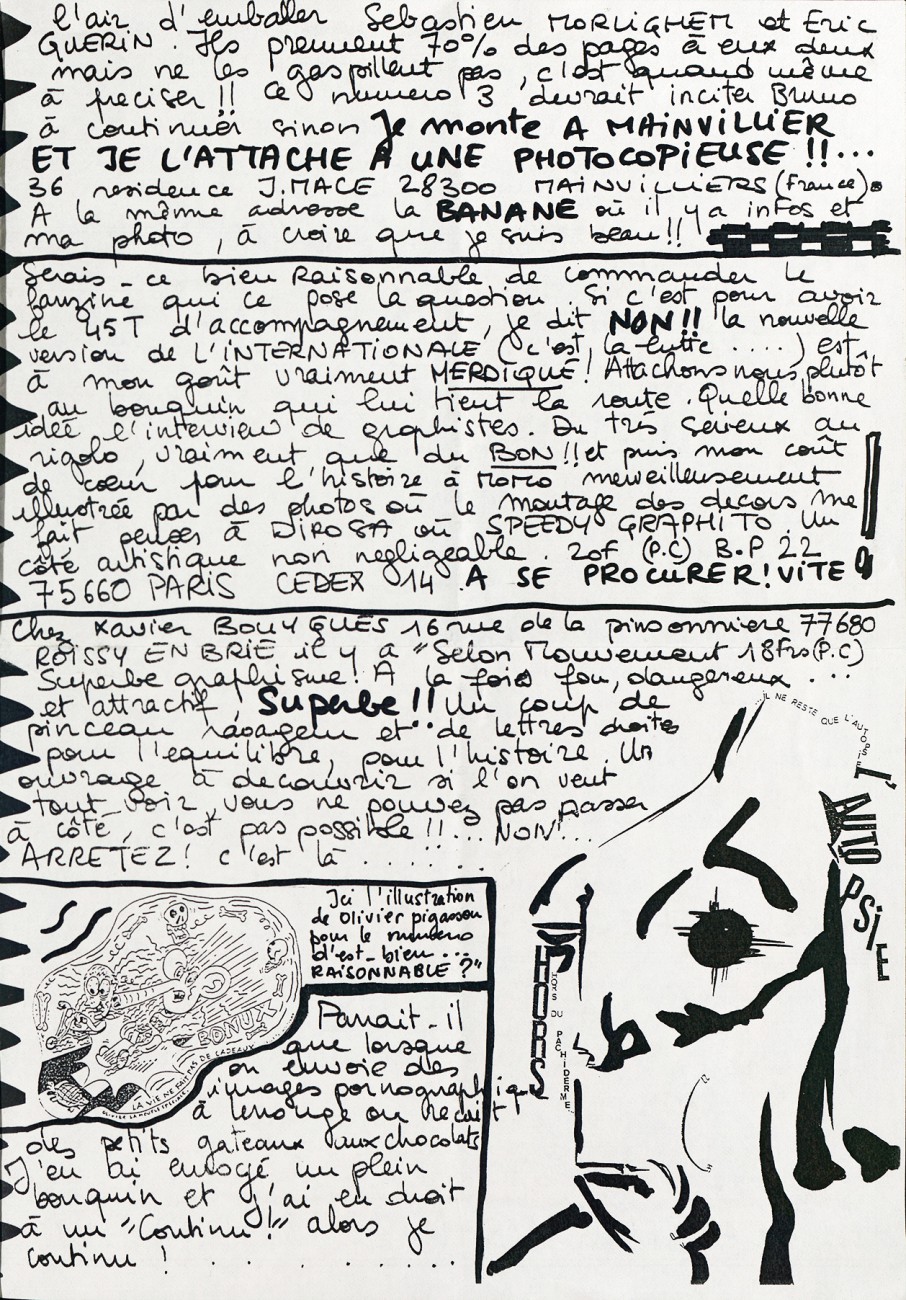 l'air d'emballer Sebastien MORLIGHEM et Eric
GUERIN. Ils prennent 70% des pages à eux deux
mais ne les gaspillent pas, c'est quand même
à preciser!! Ce numero 3 devrait inciter Bruno
à continuer sinon Je monte A MAiNViLLiER
ET JE L'ATTACHE A UNE PHOTOCOPiEUSE!!...
36 residence J.MACE 28300 MAiNViLLiERS (France).
A la même adresse la BANANE où il y a infos et
ma photo, à croire que je suis beau!!
Serais-ce bien Raisonnable de commander le
fanzine qui ce pose la question. Si c'est pour avoir
le 45T d'accompagnement, je dit NON!! la nouvelle
version de L'iNTERNATiONALE (c'est la lutte ....) est
à mon goût vraiment MERDiQUE! Attachons nous plutôt
au bouquin qui lui tient la route. Quelle bonne
idée l'interview de graphistes. Du très serieux au
rigolo, vraiment que du BON!! et puis mon coût
de coeur pour l'histoire à MOMO merveilleusement
illustrée par des photos où le montage des decors me
fait penser à DiROSA ou SPEEDY GRAPHiTO. Un
côté artistique non negligeable. 20f (P.C) B.P 22
75660 PARIS CEDEX 14 A SE PROCURER! ViTE!
Chez Xavier BOUYGUES 16 rue de la pinsonniere 77680
ROiSSY EN BRiE il y a "Selon Mouvement 18Frs (P.C)
Superbe graphisme! A la fois fou, dangereux ...
et attractif, Superbe!! Un coup de
pinceau ravageur et de lettres droites
pour l'equilibre, pour l'histoire. Un
ouvrage à decouvrir si l'on veut
tout voir, vous ne pouvez pas passer
à côté, c'est pas possible!!... NON!...
ARRETEZ! c'est là .......
...IL NE RESTE QUE L'AUTOPSIE
L'AUTOPSIE
HORS
HORS DU PACHIDERME
Ici l'illustration
de Olivier pigasson
pour le numero
d'est-bien...
RAiSONNABLE?"
BONUX
LA VIE NE FAIT PAS DE CADEAUX
Parait-il
que lorsque
on envoie des
images pornographique
à lerouge on reçoit
des petits gateaux aux chocolats
J'en ai envoyé un plein
bouquin et j'ai eu droit
à un "Continu!" alors je
continu! .......